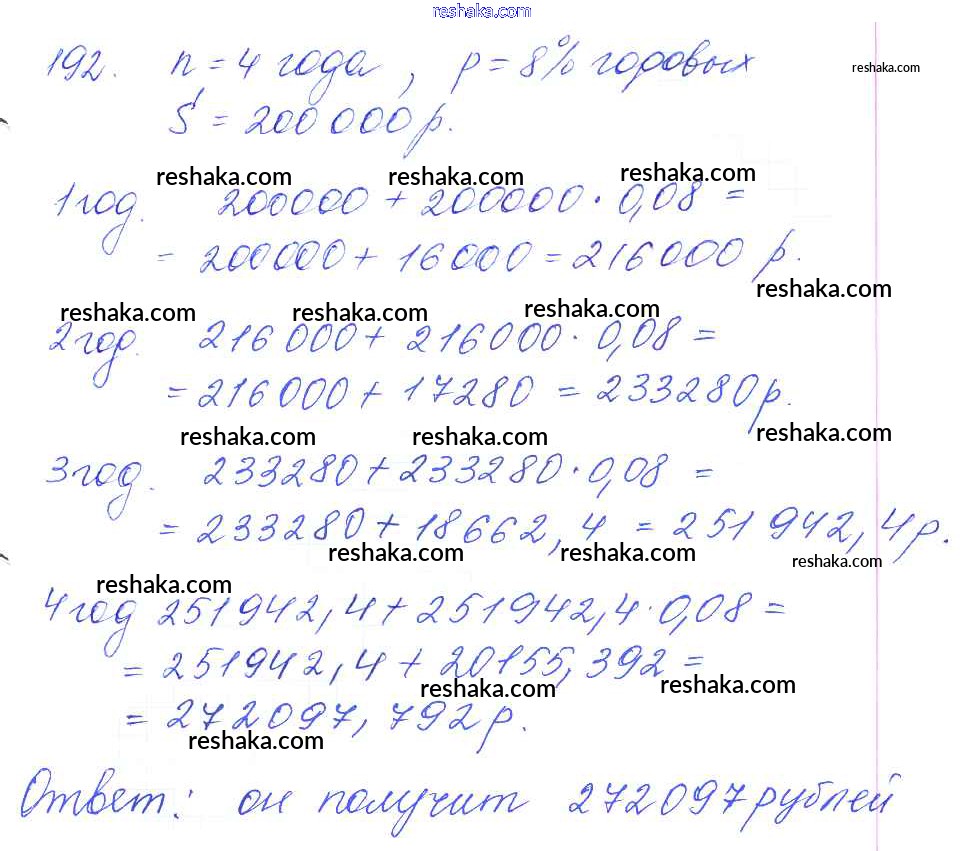 reshaka.com
192. n = 4 года, p = 8% годовых
reshaka.com
S = 200 000 р.
reshaka.com reshaka.com reshaka.com
1 год. 200000 + 200000 · 0,08 =
= 200000 + 16000 = 216000 р.
reshaka.com
reshaka.com reshaka.com reshaka.com
2 год. 216 000 + 216000 · 0,08 =
= 216 000 + 17280 = 233280 р.
reshaka.com reshaka.com reshaka.com
3 год. 233280 + 233280 · 0,08 =
= 233280 + 18662,4 = 251 942,4 р.
reshaka.com reshaka.com reshaka.com
reshaka.com
4 год 251942,4 + 251942,4 · 0,08 =
= 251942,4 + 20155,392 =
reshaka.com reshaka.com
= 272097,792 р.
reshaka.com
Ответ: он получит 272097 рублей